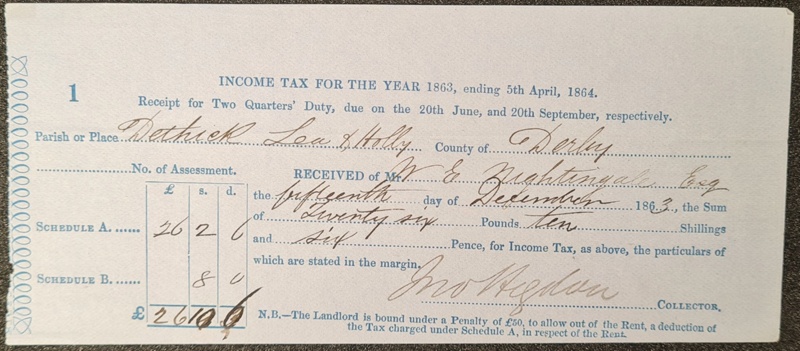 1
INCOME TAX FOR THE YEAR 1863, ending 5th April, 1864.
Receipt for Two Quarters' Duty, due on the 20th June, and 20th September, respectively.
Parish or Place Dethick Lea & Holly County of Derby
No. of Assessment.
RECEIVED of Mr W E Nightingale Esq
the fifteenth day of December 1863, the Sum
of Twenty six Pounds ten Shillings
and six Pence, for Income Tax, as above, the particulars of
which are stated in the margin.
£ s. d.
SCHEDULE A. 26 2 6
SCHEDULE B. 8 0
£ 26 10 6
Jno Higdon
COLLECTOR.
N.B.—The Landlord is bound under a Penalty of £50, to allow out of the Rent, a deduction of
the Tax charged under Schedule A, in respect of the Rent.